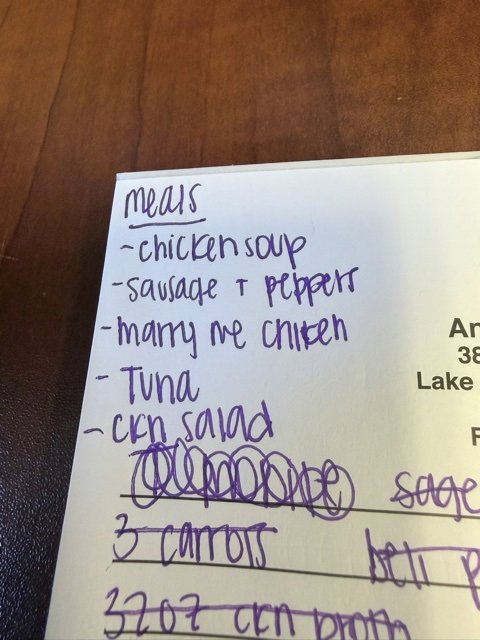 meals
- chicken soup
- sausage + peppers
- marry me chicken
- Tuna
- ckn salad
An
38
Lake
F
sage
3 carrots
bell p
32oz ckn broth